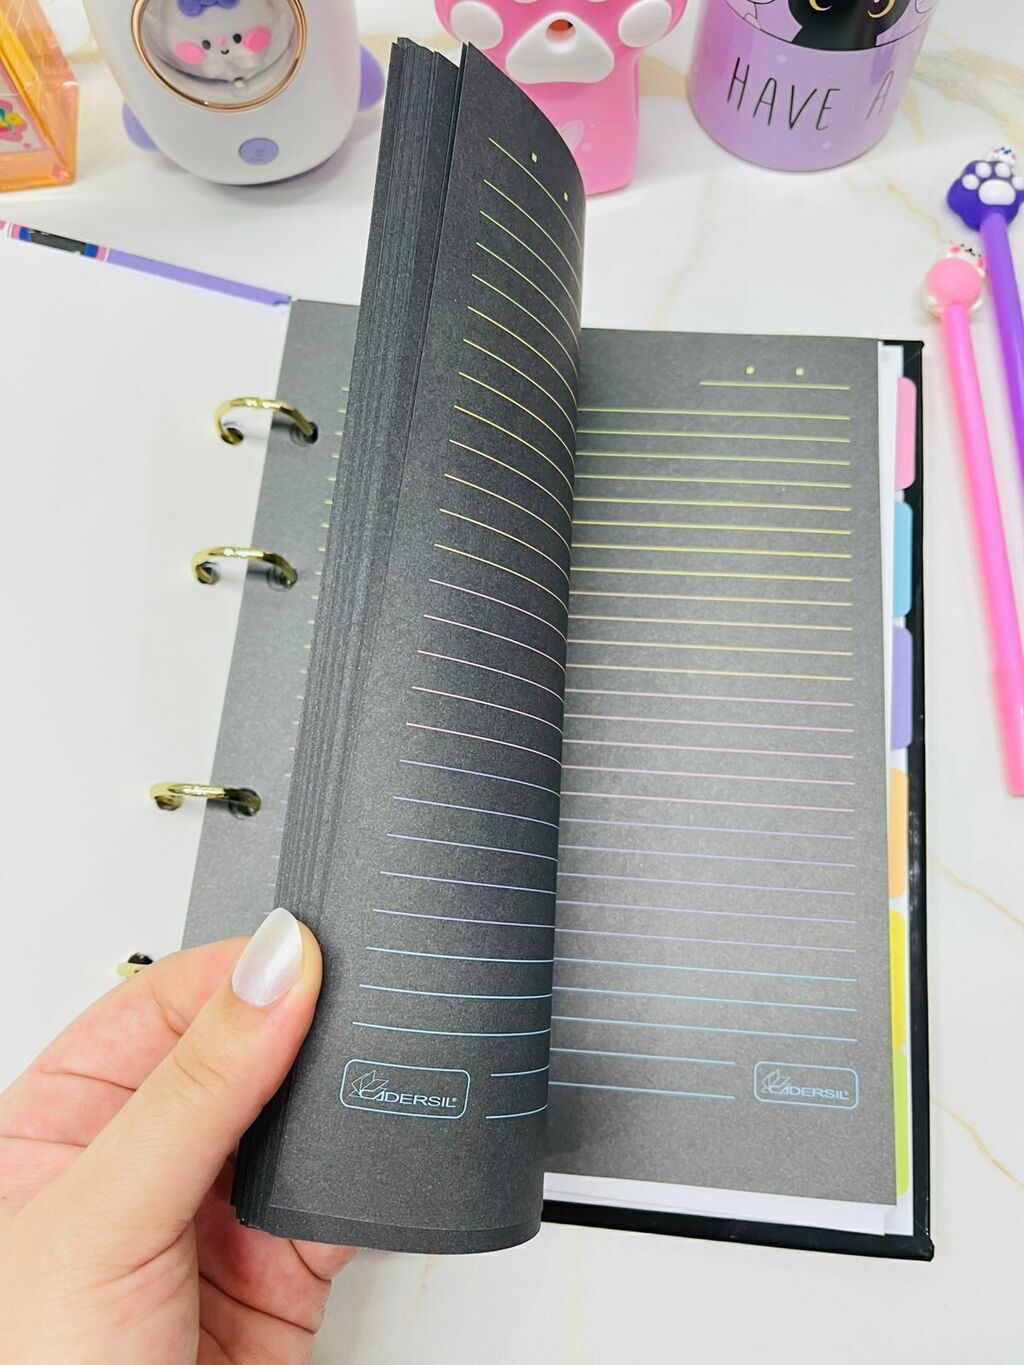 HAVE A
CADERSIL®
CADERSIL®